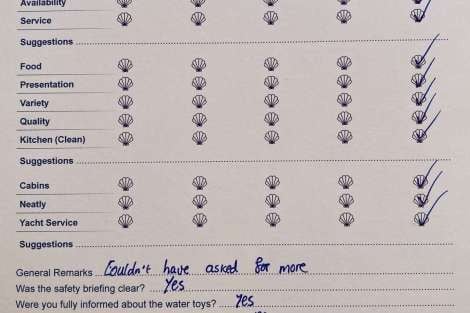 Availability
Service
Suggestions
Food
Presentation
Variety
Quality
Kitchen (Clean)
Suggestions
Cabins
Neatly
Yacht Service
Suggestions
General Remarks Couldn't have asked for more
Was the safety briefing clear? Yes
Were you fully informed about the water toys? Yes